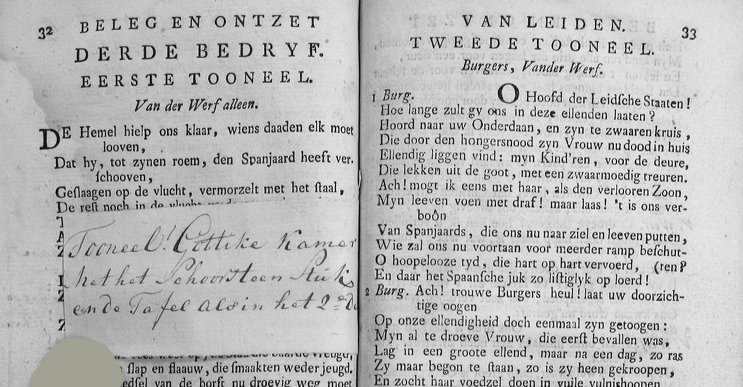 32 BELEG EN ONTZET
DERDE BEDRYF.
EERSTE TOONEEL.
Van der Werf alleen.
DE Hemel hielp ons klaar, wiens daaden elk moet
looven,
Dat hy, tot zynen roem, den Spanjaard heeft ver-
schooven,
Geslaagen op de vlucht, vermorzelt met het staal,
De rest noch in de vlucht
Tooneel! Gottike Kamer
het het Schoorsteen Stuk
en de Tafel als in het 2de
slap en flaauw, die smaakten weder jeugd.
de borst nu droevig weg moet
VAN LEIDEN. 33
TWEEDE TOONEEL.
Burgers, Vander Werf.
1 Burg. O Hoofd der Leidsche Staaten!
Hoe lange zult gy ons in deze ellenden laaten?
Hoord naar uw Onderdaan, en zyn te zwaaren kruis,
Die door den hongersnood zyn Vrouw nu dood in huis
Ellendig liggen vind: myn Kind'ren, voor de deure,
Die lekken uit de goot, met een zwaarmoedig treuren.
Ach! mogt ik eens met haar, als den verlooren Zoon,
Myn leeven voen met draf! maar laas! 't is ons ver-
boôn
Van Spanjaards, die ons nu naar ziel en leeven putten,
Wie zal ons nu voortaan voor meerder ramp beschut-
O hoopelooze tyd, die hart op hart vervoerd, (ten?
En daar het Spaansche juk zo listiglyk op loerd!
2 Burg. Ach! trouwe Burgers heul! laat uw doorzich-
tige oogen
Op onze ellendigheid doch eenmaal zyn getoogen:
Myn al te droeve Vrouw, die eerst bevallen was,
Lag in een groote ellend, maar na een dag, zo ras
Zy maar begon te staan, zo is zy heen gekroopen,
En zocht haar voedzel doen in vuile vulnishoopen